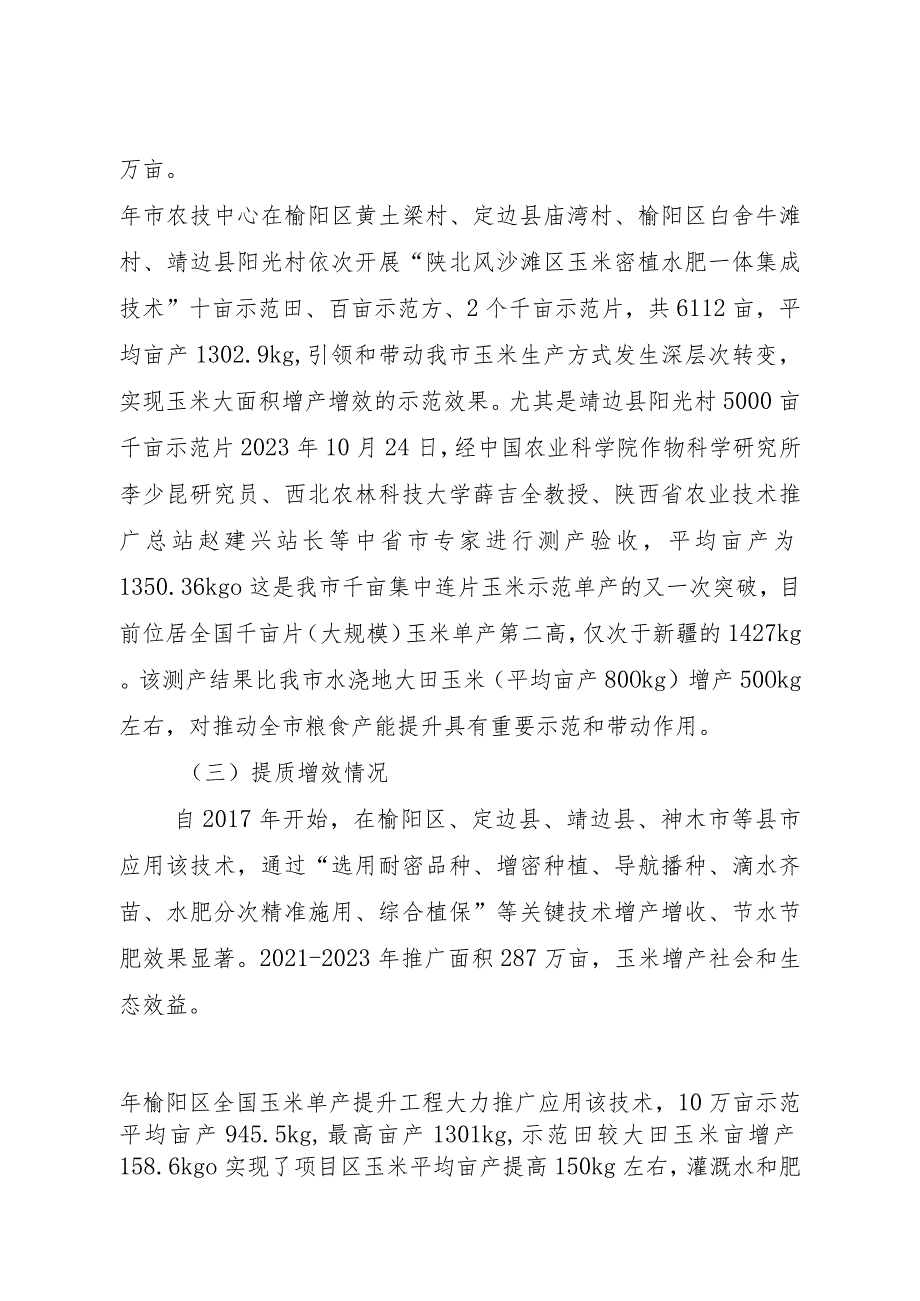 万亩。
年市农技中心在榆阳区黄土梁村、定边县庙湾村、榆阳区白舍牛滩
村、靖边县阳光村依次开展“陕北风沙滩区玉米密植水肥一体集成
技术”十亩示范田、百亩示范方、2 个千亩示范片，共 6112 亩，平
均亩产 1302.9kg,引领和带动我市玉米生产方式发生深层次转变，
实现玉米大面积增产增效的示范效果。尤其是靖边县阳光村 5000 亩
千亩示范片 2023 年 10 月 24 日,经中国农业科学院作物科学研究所
李少昆研究员、西北农林科技大学薛吉全教授、陕西省农业技术推
广总站赵建兴站长等中省市专家进行测产验收，平均亩产为
1350.36kgo 这是我市千亩集中连片玉米示范单产的又一次突破，目
前位居全国千亩片（大规模）玉米单产第二高，仅次于新疆的 1427kg
。该测产结果比我市水浇地大田玉米（平均亩产 800kg）增产 500kg
左右，对推动全市粮食产能提升具有重要示范和带动作用。
（三）提质增效情况
自 2017 年开始，在榆阳区、定边县、靖边县、神木市等县市
应用该技术，通过“选用耐密品种、增密种植、导航播种、滴水齐
苗、水肥分次精准施用、综合植保”等关键技术增产增收、节水节
肥效果显著。2021-2023 年推广面积 287 万亩，玉米增产社会和生
态效益。
年榆阳区全国玉米单产提升工程大力推广应用该技术，10 万亩示范
平均亩产 945.5kg,最高亩产 1301kg,示范田较大田玉米亩增产
158.6kgo 实现了项目区玉米平均亩产提高 150kg 左右，灌溉水和肥